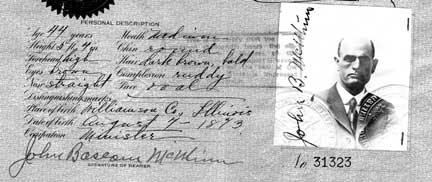 PERSONAL DESCRIPTION
Age 44 years Mouth medium
Height 5 ft. Chin round
Forehead high Hair dark brown, bald
Eyes brown Complexion ruddy
Nose straight Face oval
Distinguishing marks
Place of birth Williamson Co, Illinois
Date of birth August 1873
Occupation Minister
John Bascom McMinn
SIGNATURE OF BEARER
John B. McMinn
No 31323